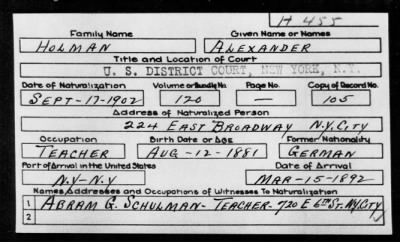 H 455
Family Name Given Name or Names
HOLMAN ALEXANDER
Title and Location of Court
U. S. DISTRICT COURT, NEW YORK, N.Y.
Date of Naturalization Volume or Bundle No. Page No. Copy of Record No.
SEPT-17-1902 120 — 105
Address of Naturalized Person
224 EAST BROADWAY N.Y. CITY
Occupation Birth Date or Age Former Nationality
TEACHER AUG-12-1881 GERMAN
Port of Arrival in the United States Date of Arrival
N.Y-N.Y MAR-15-1892
Names, Addresses and Occupations of Witnesses To Naturalization
1 ABRAM G. SCHULMAN-TEACHER-720 E 6TH ST. N.Y. CITY
2